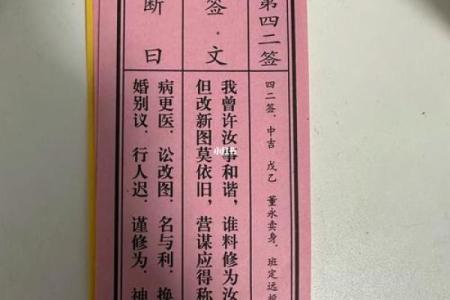 第四二签
四二签.中吉 戊乙 董永卖身.班定远
签·文
我曾许汝事和谐,谁料修为汝
但改新图莫依旧,营谋应得称
小红书
断曰
病更医.讼改图.名与利.换
婚别议.行人迟.谨修为.神